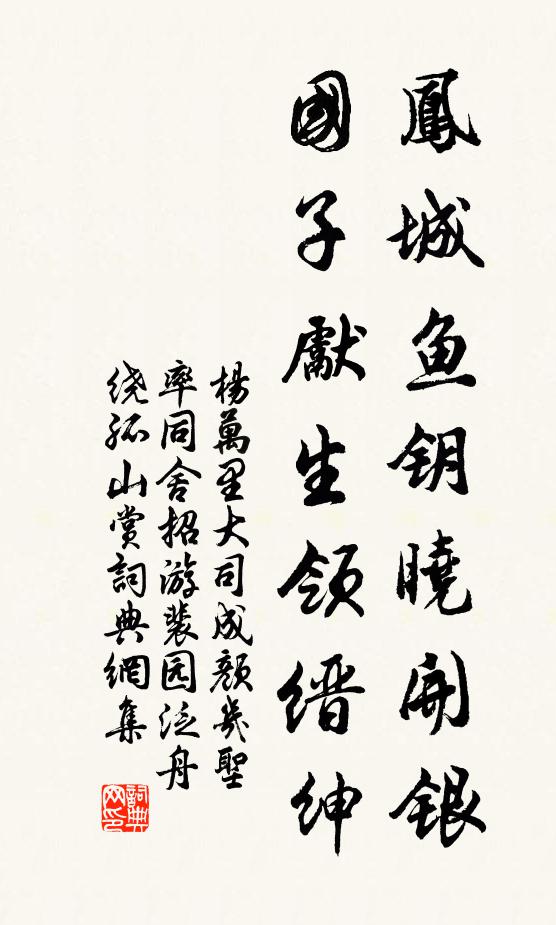 鳳城鱼钥曉開銀
國子獻生領缙绅
楊萬里大司成顏幾聖
率同舍招游裴园泛舟
绕孤山賞詞典網集
詞典网印